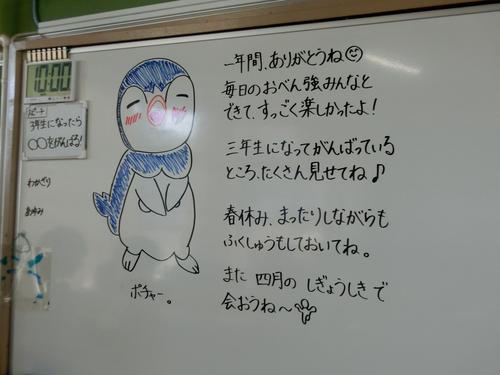 10:00
スピーチ
3年生になったら
〇〇をがんばる!
わかざり
春休み
一年間、ありがとうね
毎日のおべん強みんなと
できて、すっごく楽しかったよ!
三年生になってがんばっている
ところ、たくさん見せてね♪
春休み、まったりしながらも
ふくしゅうもしておいてね。
また 四月の しぎょうしきで
会おうね〜
ポチャー。